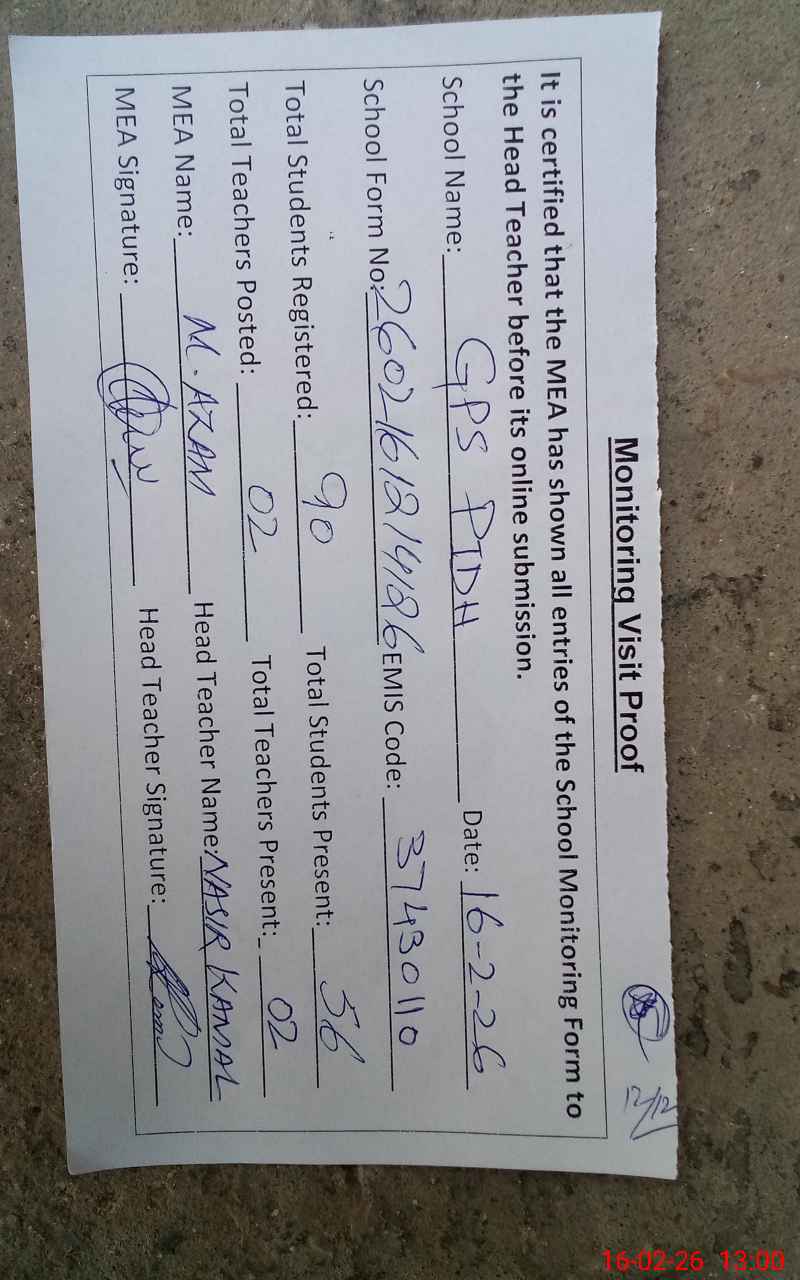 Monitoring Visit Proof
12/12
It is certified that the MEA has shown all entries of the School Monitoring Form to
the Head Teacher before its online submission.
School Name: GPS PIDH Date: 16-2-26
School Form No: 260216121486 EMIS Code: 37430110
Total Students Registered: 90 Total Students Present: 56
Total Teachers Posted: 02 Total Teachers Present: 02
MEA Name: M. AZAM Head Teacher Name: NASIR KAMAL
MEA Signature: Head Teacher Signature:
16-02-26 13:00